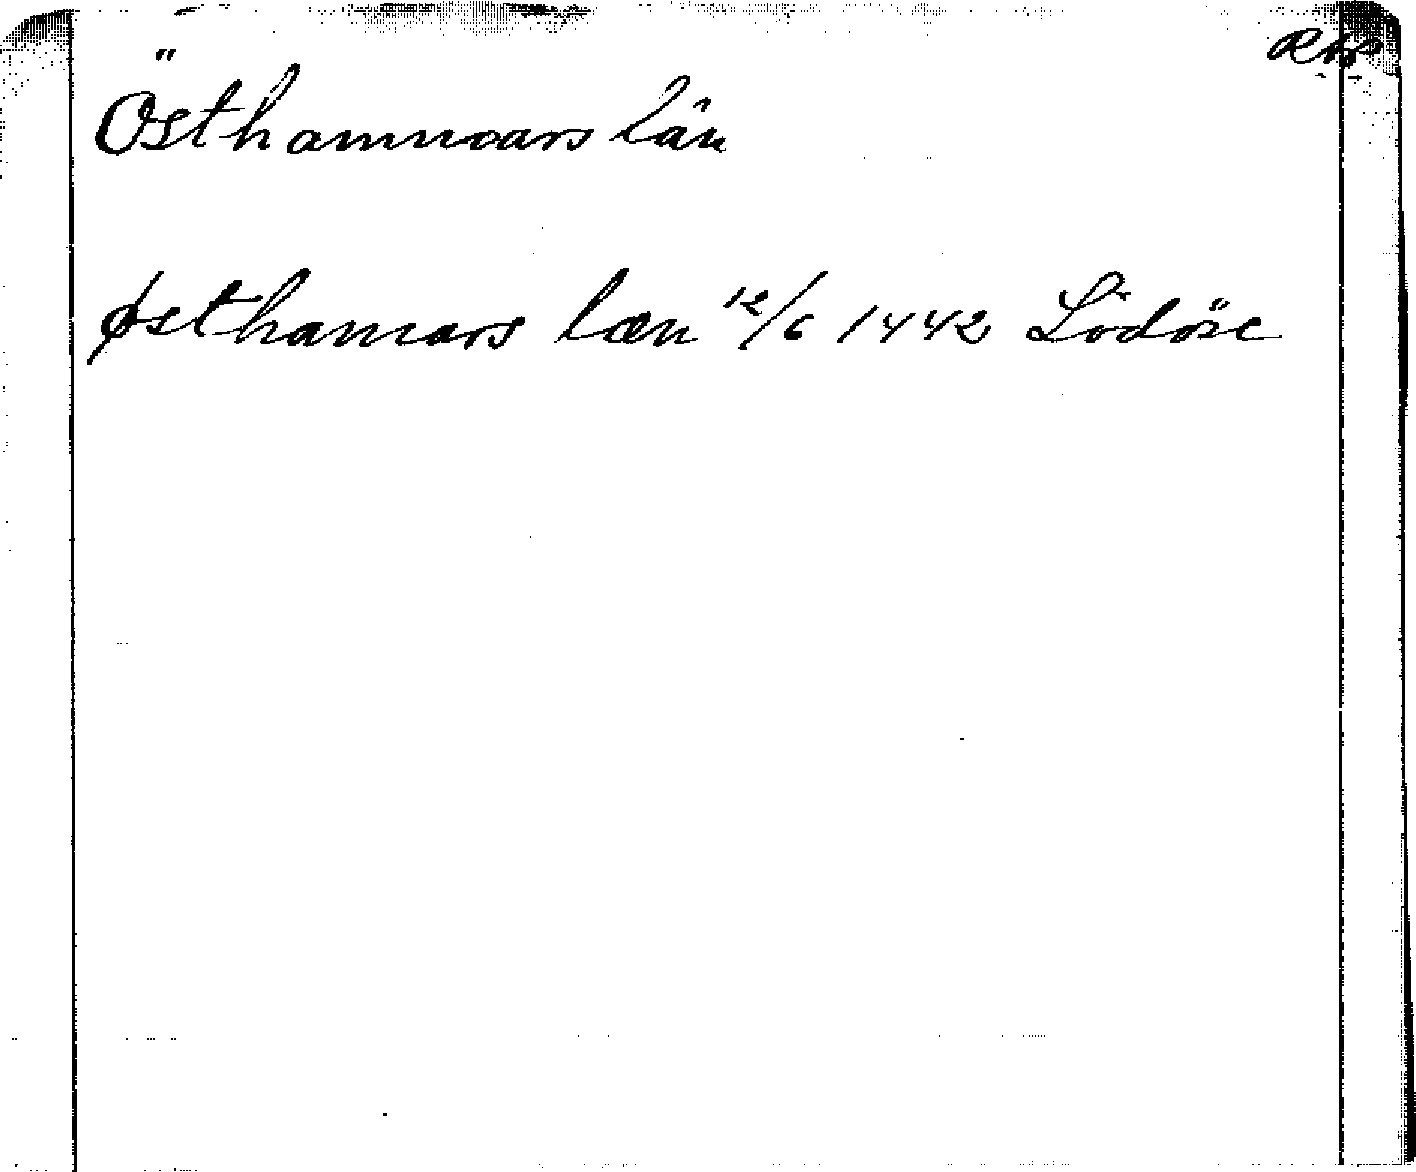 Östhammars län
østhamars læn 12/6 1442 Lödöse